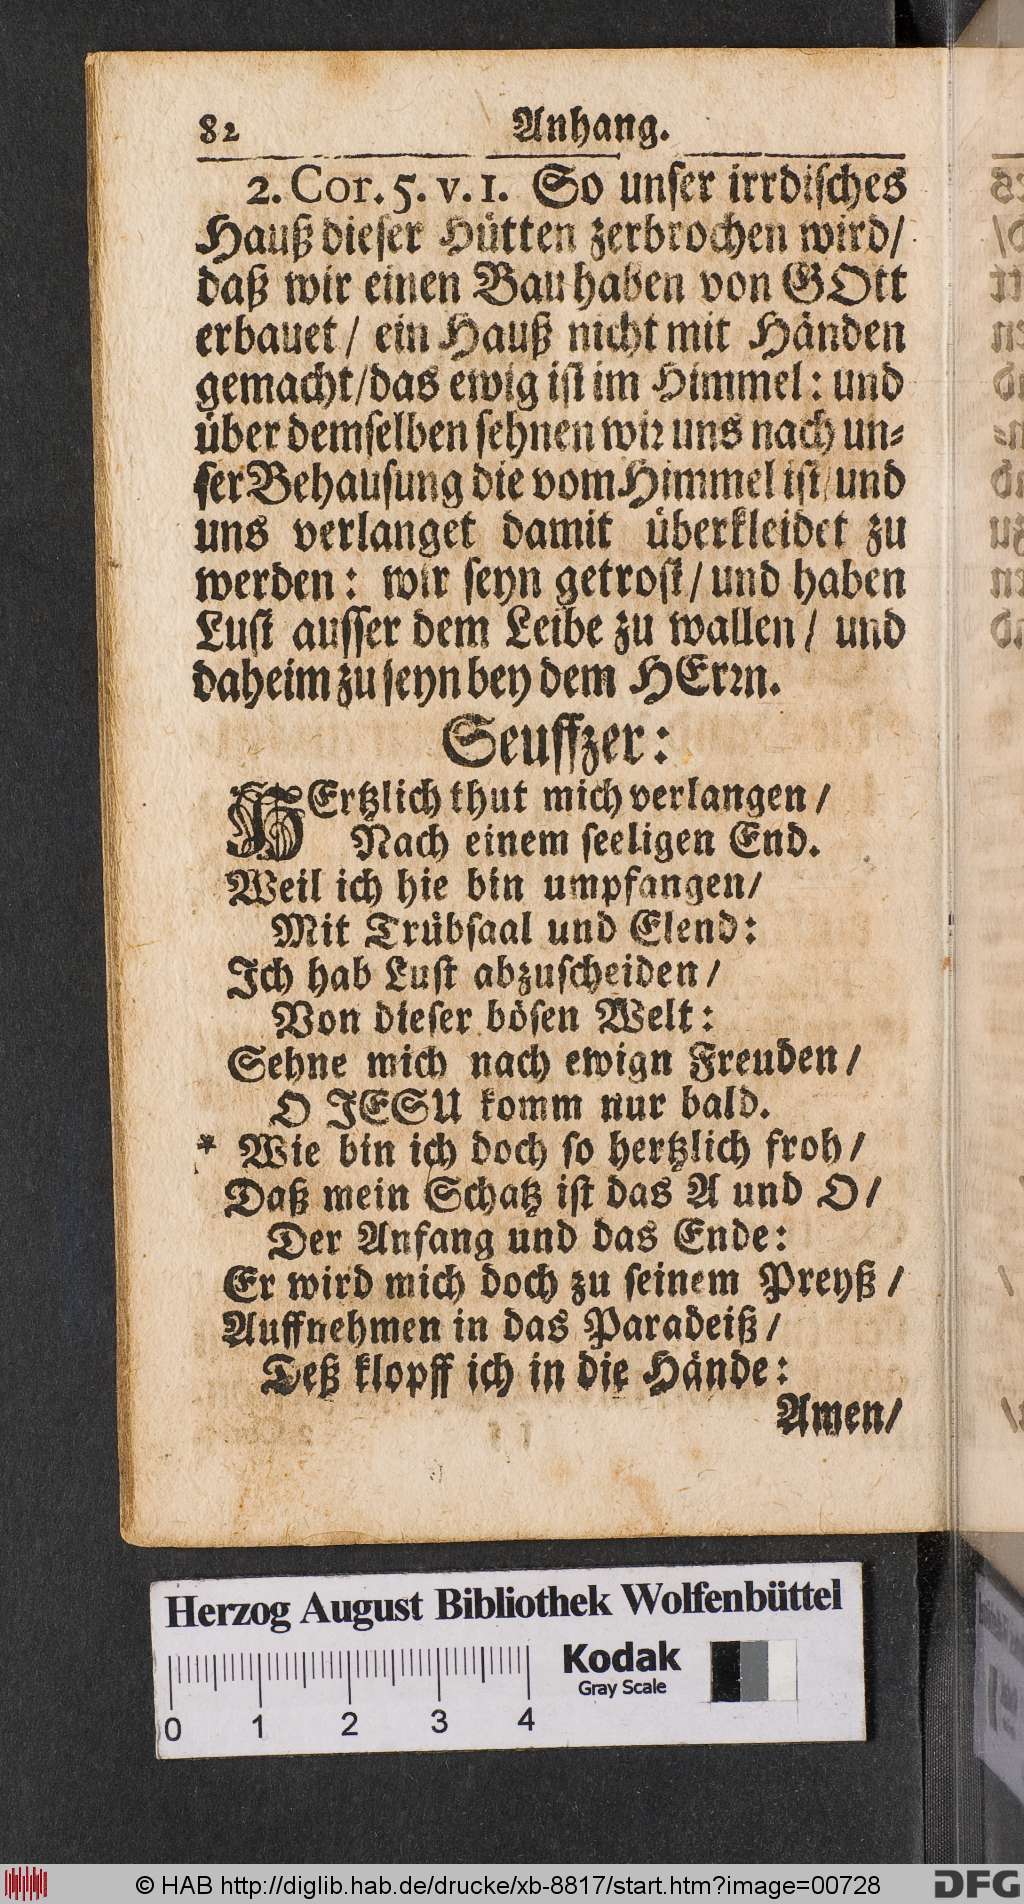 82 Anhang.
2. Cor. 5. v. 1. So unser irrdisches
Hauß dieser Hütten zerbrochen wird/
daß wir einen Bau haben von GOtt
erbauet / ein Hauß nicht mit Händen
gemacht/das ewig ist im Himmel: und
über demselben sehnen wir uns nach un-
ser Behausung die vom Himmel ist/und
uns verlanget damit überkleidet zu
werden: wir seyn getrost / und haben
Lust ausser dem Leibe zu wallen / und
daheim zu seyn bey dem HErrn.
Seuffzer:
HErtzlich thut mich verlangen /
Nach einem seeligen End.
Weil ich hie bin umpfangen/
Mit Trübsaal und Elend:
Ich hab Lust abzuscheiden /
Von dieser bösen Welt:
Sehne mich nach ewign Freuden /
O JESU komm nur bald.
* Wie bin ich doch so hertzlich froh /
Daß mein Schatz ist das A und O /
Der Anfang und das Ende:
Er wird mich doch zu seinem Preyß /
Auffnehmen in das Paradeiß /
Deß klopff ich in die Hände:
Amen/
Herzog August Bibliothek Wolfenbüttel
Kodak
Gray Scale
0 1 2 3 4
© HAB http://diglib.hab.de/drucke/xb-8817/start.htm?image=00728
DFG